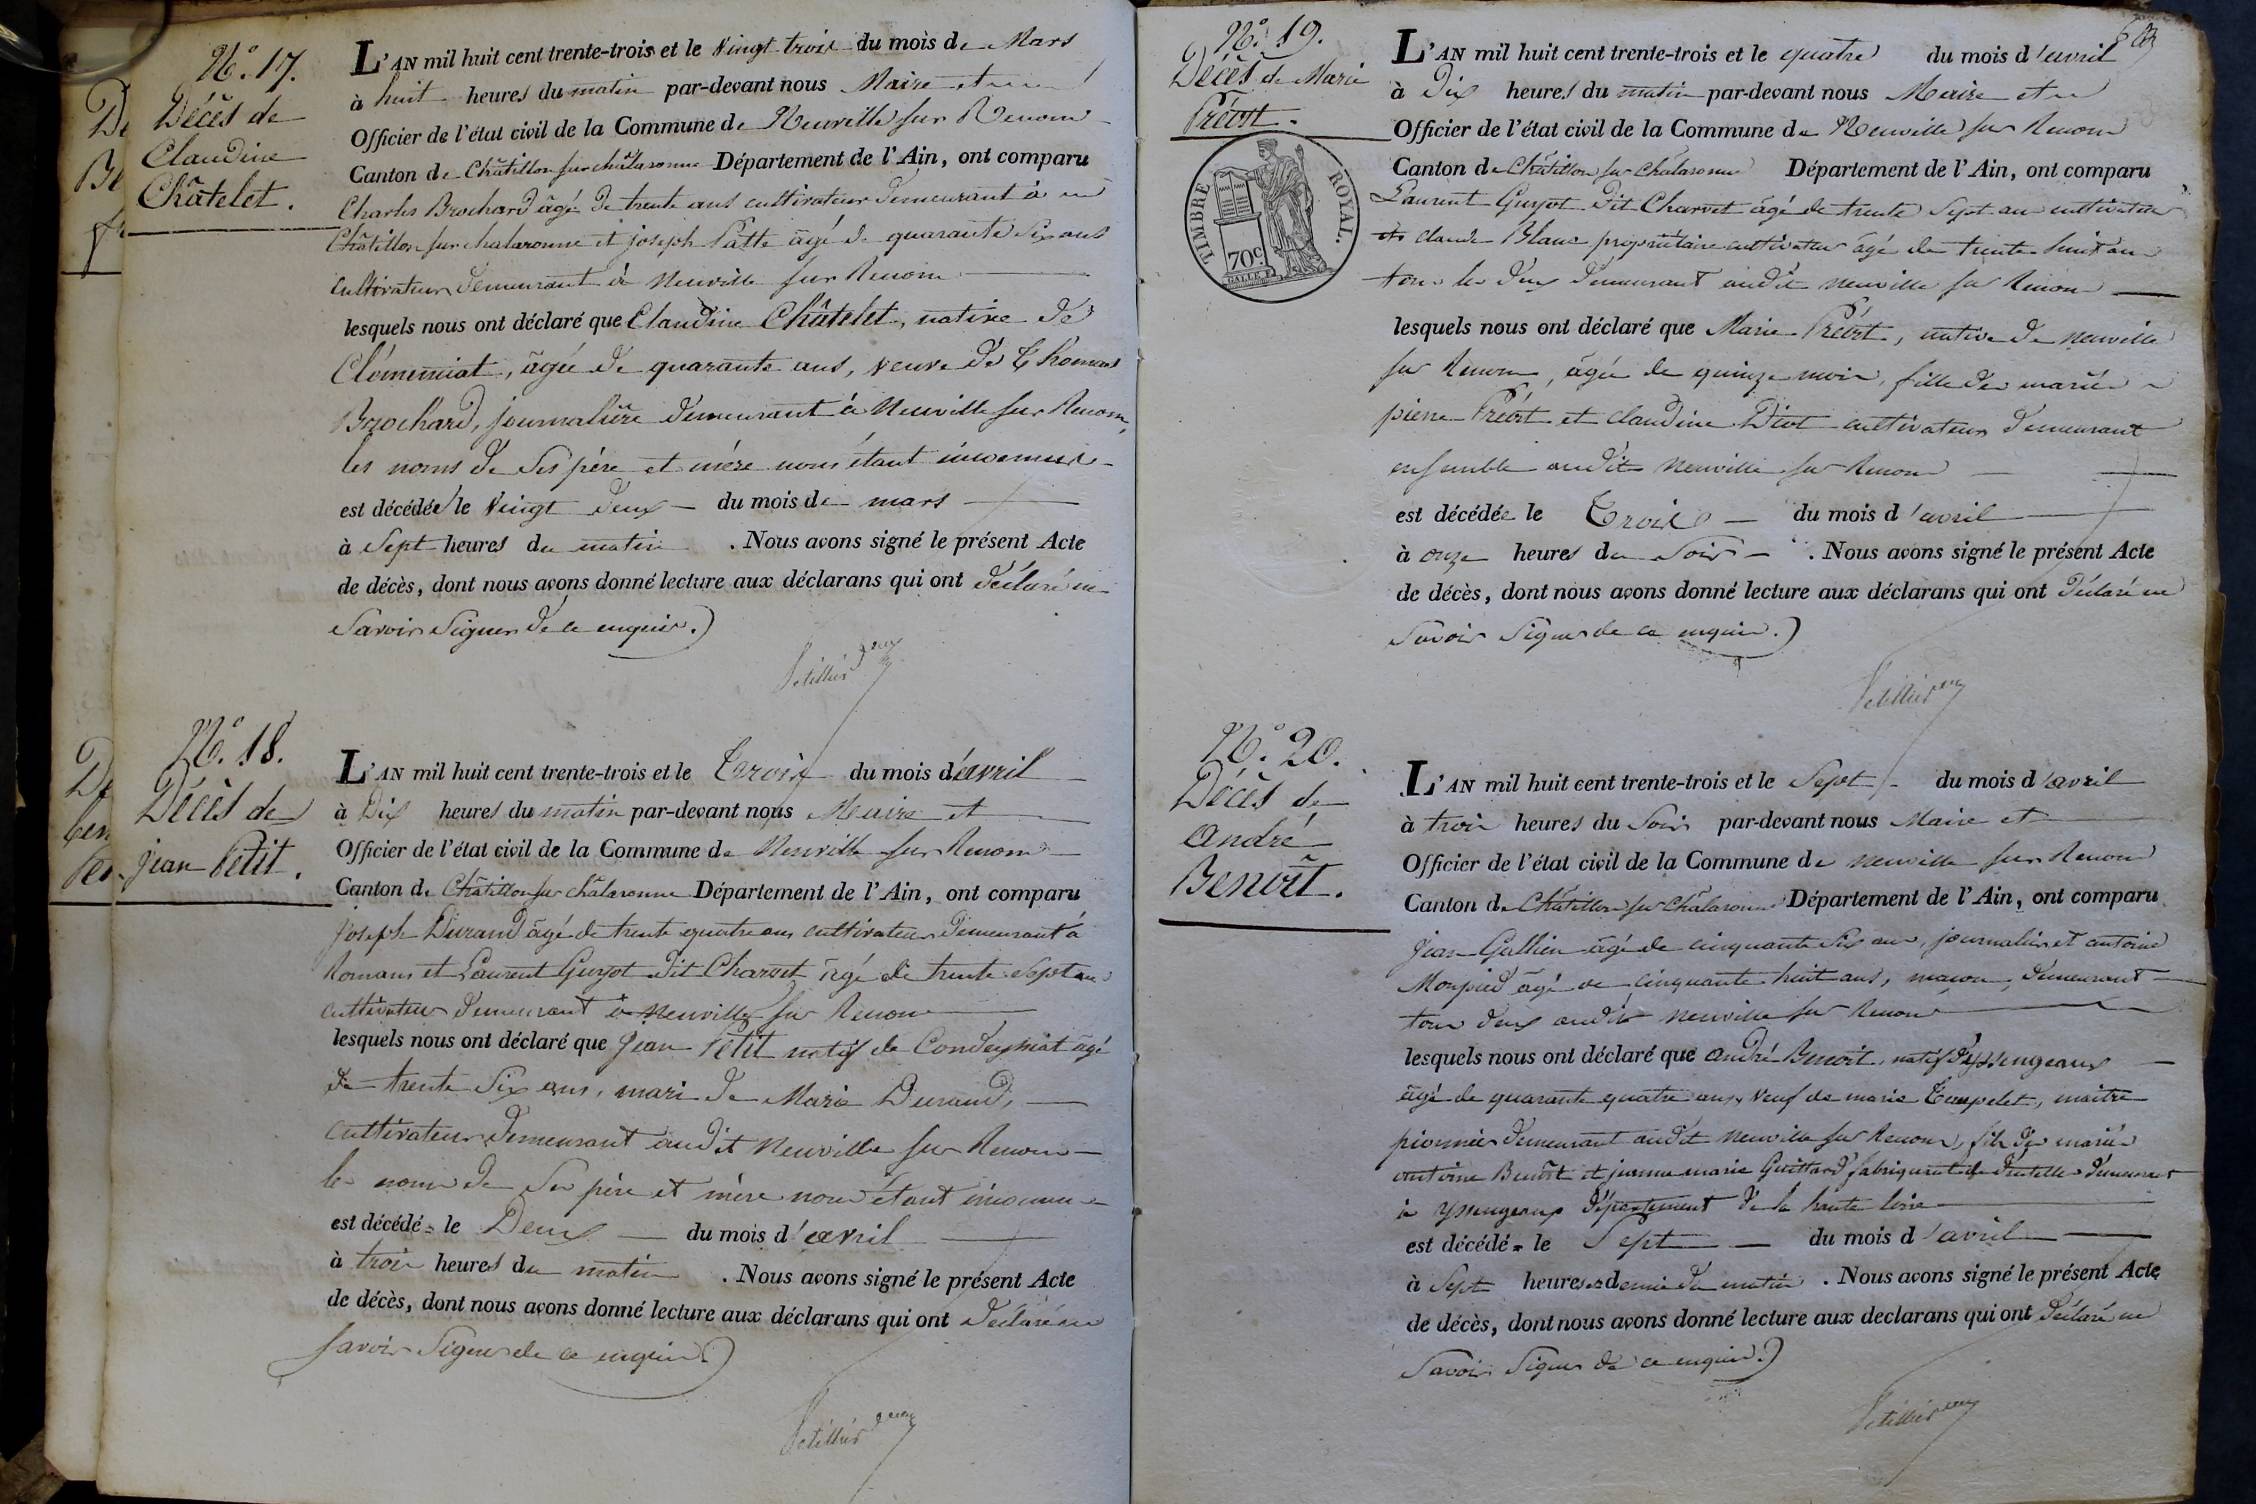 N.° 17.
Décès de
Claudine
Châtelet.
L'AN mil huit cent trente-trois et le vingt trois du mois de Mars
à huit heures du matin par-devant nous Maire et
Officier de l'état civil de la Commune de Neuville sur Renom
Canton de Châtillon sur châlaronne Département de l'Ain, ont comparu
Charles Brochard âgé de trente ans cultivateur demeurant à
Châtillon sur chalaronne et joseph Patte âgé de quarante six ans
cultivateur demeurant à Neuville sur Renom
lesquels nous ont déclaré que Claudine Châtelet, native de
Clémenciat, âgée de quarante ans, veuve de Thomas
Brochard, journalière demeurant à Neuville sur Renom,
les noms de ses père et mère nous étant inconnus
est décédée le vingt deux du mois de mars
à sept heures du matin. Nous avons signé le présent Acte
de décès, dont nous avons donné lecture aux déclarans qui ont déclaré ne
savoir signer de ce enquis.)
N.° 18.
Décès de
jean Petit.
L'AN mil huit cent trente-trois et le trois du mois d'avril
à dix heures du matin par-devant nous Maire et
Officier de l'état civil de la Commune de Neuville sur Renom
Canton de Châtillon sur châlaronne Département de l'Ain, ont comparu
joseph Durand âgé de trente quatre ans cultivateur demeurant à
Romans et Laurent Guyot dit Charvet âgé de trente sept ans
cultivateur demeurant à Neuville sur Renom
lesquels nous ont déclaré que jean Petit natif de Condeyssiat âgé
de trente six ans, mari de Marie Durand,
cultivateur demeurant audit Neuville sur Renom
les noms de ses père et mère nous étant inconnus
est décédé le Deux du mois d'avril
à trois heures du matin. Nous avons signé le présent Acte
de décès, dont nous avons donné lecture aux déclarans qui ont déclaré ne
savoir signer de ce enquis.)
N.° 19.
Décès de Marie
Préost.
TIMBRE ROYAL.
70c.
L'AN mil huit cent trente-trois et le quatre du mois d'avril
à Dix heures du matin par-devant nous Maire et
Officier de l'état civil de la Commune de Neuville sur Renom
Canton de Châtillon sur Châlaronne Département de l'Ain, ont comparu
Laurent Guyot dit Charvet âgé de trente sept ans cultivateur
et claude Blanc propriétaire cultivateur âgé de trente huit ans
tous les deux demeurant audit neuville sur Renom
lesquels nous ont déclaré que Marie Préost, native de neuville
sur Renom, âgée de quinze mois, fille des mariés
pierre Préost et claudine Diot cultivateurs demeurant
ensemble audit Neuville sur Renom
est décédée le Trois du mois d'avril
à onze heures du soir. Nous avons signé le présent Acte
de décès, dont nous avons donné lecture aux déclarans qui ont déclaré ne
savoir signer de ce enquis.)
N.° 20.
Décès de
andré
Benoît.
L'AN mil huit cent trente-trois et le sept du mois d'avril
à trois heures du soir par-devant nous Maire et
Officier de l'état civil de la Commune de neuville sur Renom
Canton de Châtillon sur Châlaronne Département de l'Ain, ont comparu
jean Gallien âgé de cinquante six ans, journalier et antoine
Monpied âgé de cinquante huit ans, maçon, demeurant
tous deux audit neuville sur Renom
lesquels nous ont déclaré que andré Benoit, natif d'yssengeaux
âgé de quarante quatre ans, veuf de marie, maitre
pionnier demeurant audit neuville sur Renom, fils des mariés
antoine Benoît et jeanne marie Guittard fabriquant de dentelles demeurant
à yssengeaux département de la haute loire
est décédé le sept du mois d'avril
à sept heures et demie du matin. Nous avons signé le présent Acte
de décès, dont nous avons donné lecture aux declarans qui ont déclaré ne
savoir signer de ce enquis.)